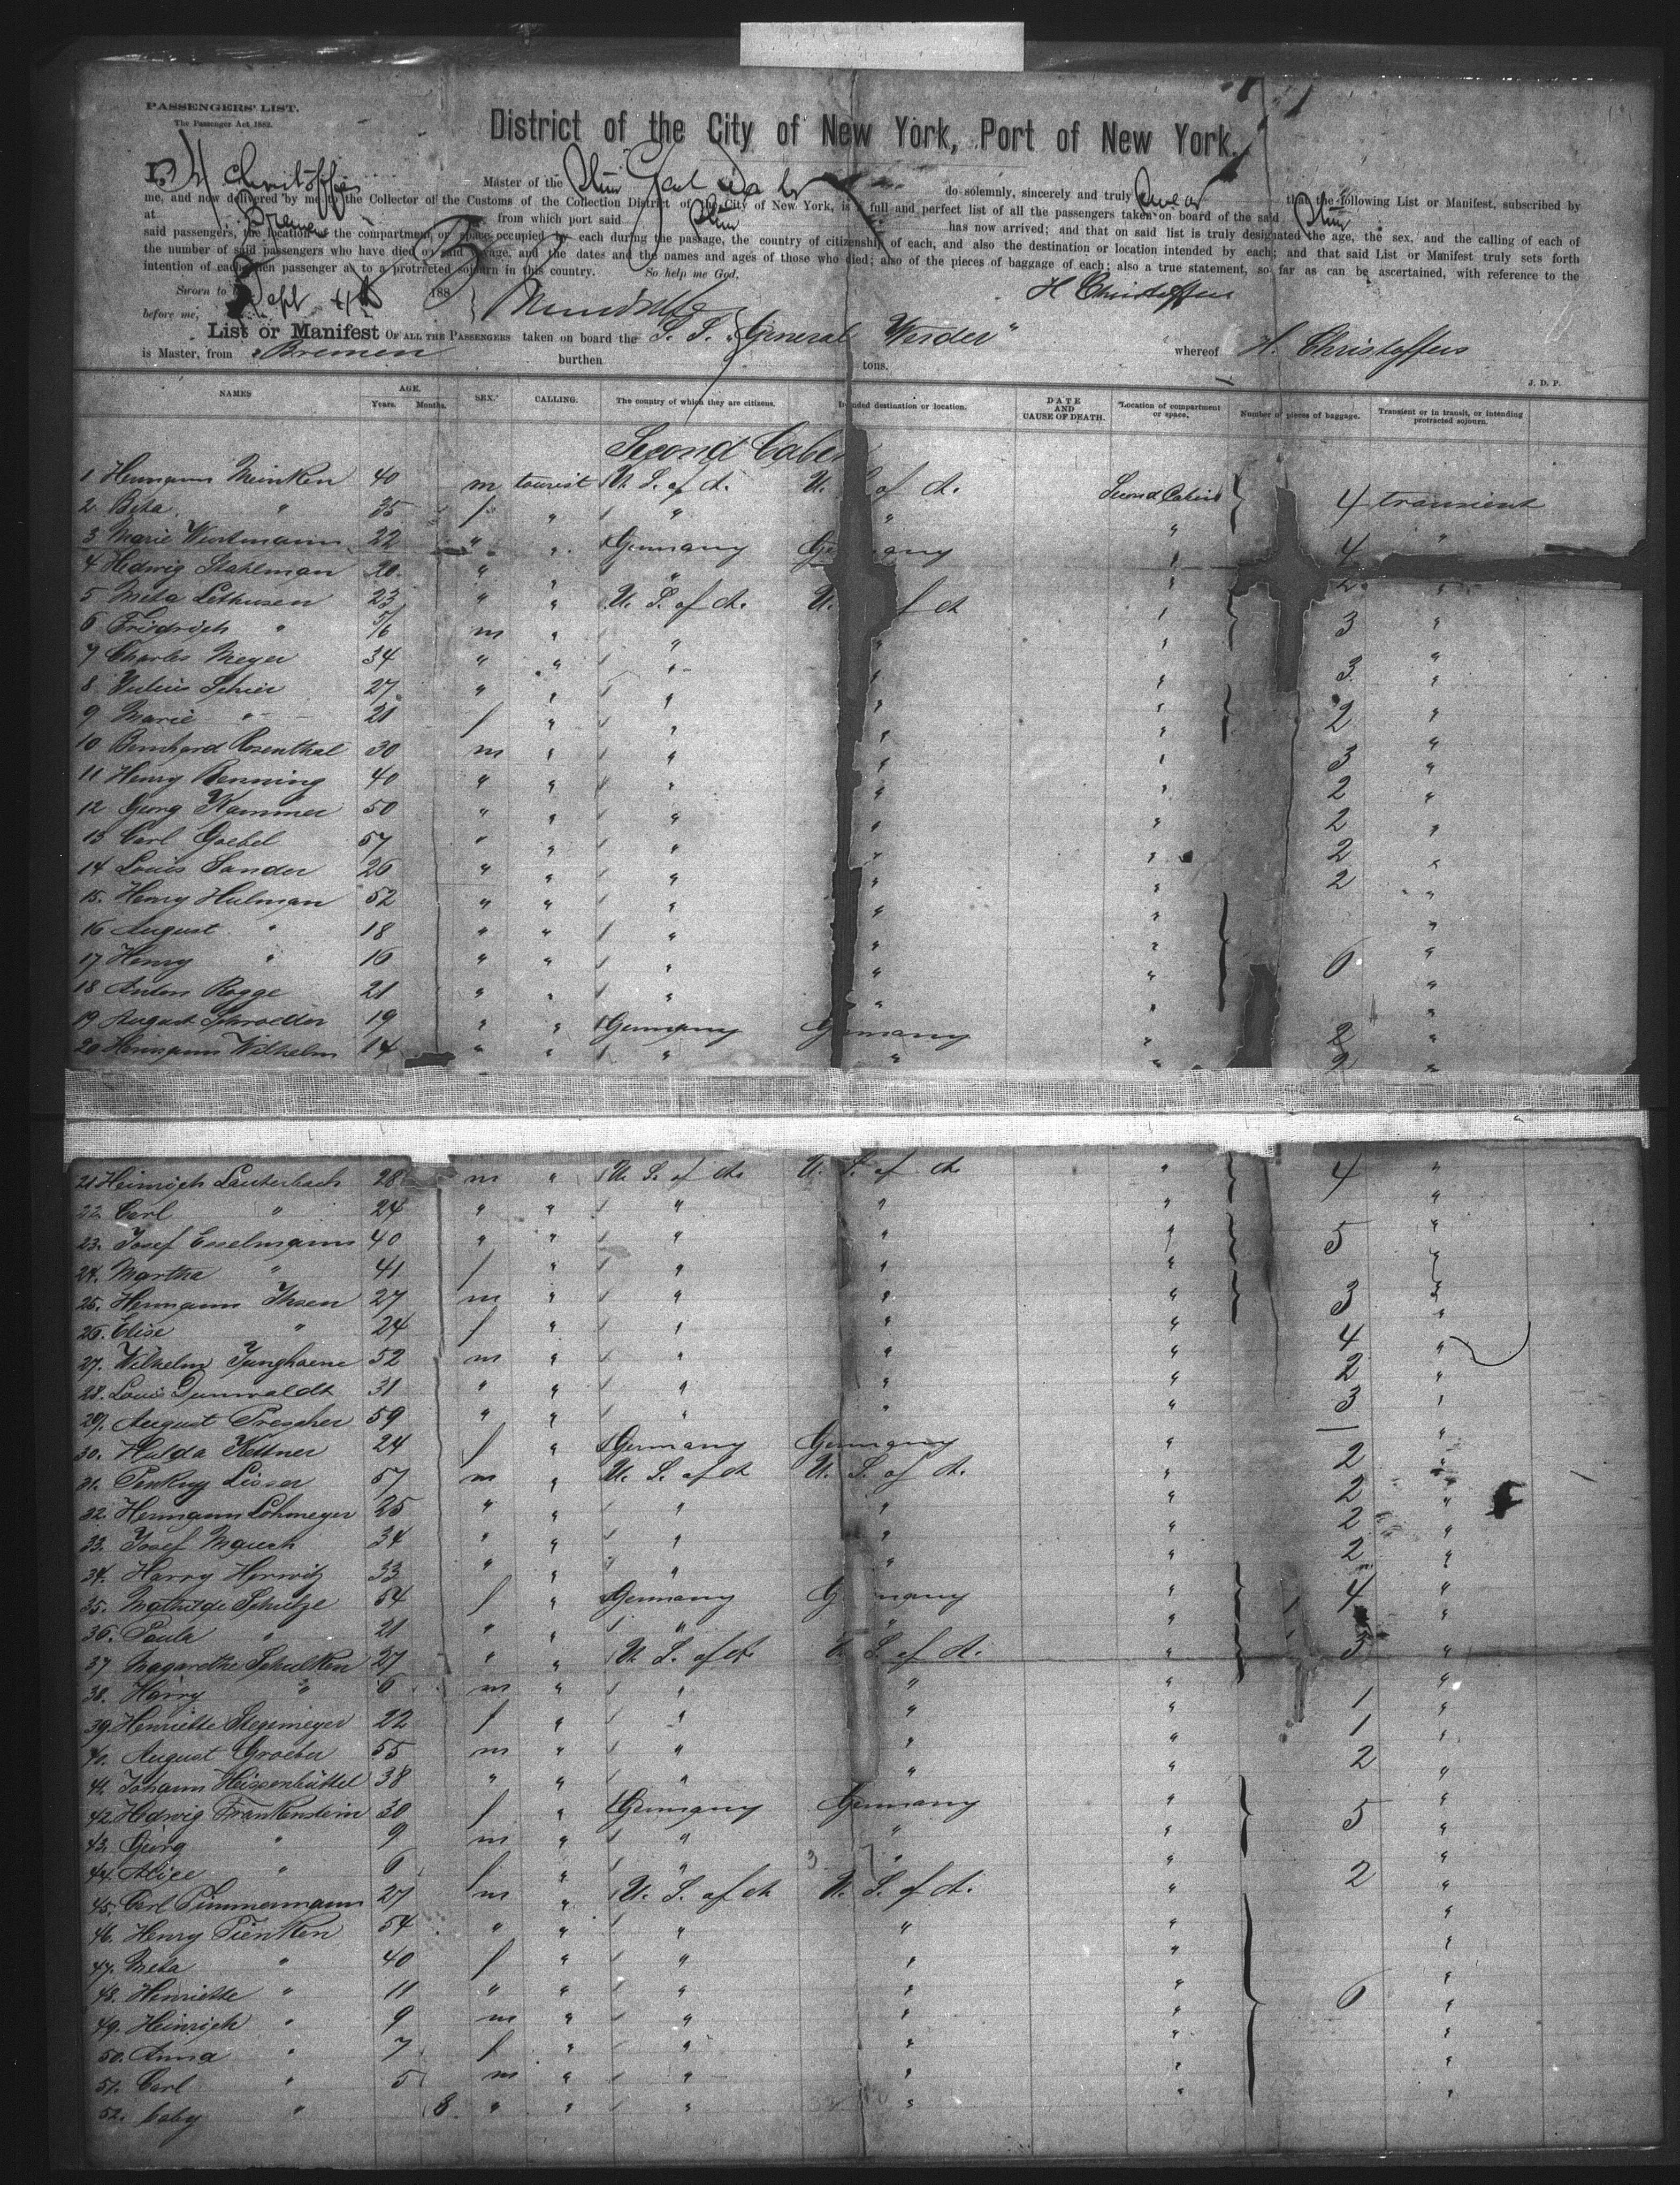 PASSENGERS' LIST.
The Passenger Act 1882.
District of the City of New York, Port of New York.
I, H Christoffers Master of the Stmr Genl Werder do solemnly, sincerely and truly swear that the following List or Manifest, subscribed by
me, and now delivered by me to the Collector of the Customs of the Collection District of the City of New York, is a full and perfect list of all the passengers taken on board of the said Stmr
at Bremen from which port said Stmr has now arrived; and that on said list is truly designated the age, the sex, and the calling of each of
said passengers, the location of the compartment or space occupied by each during the passage, the country of citizenship of each, and also the destination or location intended by each; and that said List or Manifest truly sets forth
the number of said passengers who have died on said voyage, and the dates and the names and ages of those who died; also of the pieces of baggage of each; also a true statement, so far as can be ascertained, with reference to the
intention of each alien passenger as to a protracted sojourn in this country. So help me God.
Sworn to Sept 4th 188 H Christoffers
before me,
List or Manifest OF ALL THE PASSENGERS taken on board the S. S. "General Werder" whereof H. Christoffers
is Master, from Bremen burthen tons.
J. D. P.
NAMES AGE. Years. Months. SEX. CALLING. The country of which they are citizens. Intended destination or location. DATE AND CAUSE OF DEATH. Location of compartment or space. Number of pieces of baggage. Transient or in transit, or intending protracted sojourn.
Second Cabin
1 Hermann Meinken 40 m tourist U. S. of A. U. S. of A. Second Cabin 4 transient
2 Beta " 35 f " " " "
3 Marie Wurtmann 22 " " Germany Germany " 4 "
4 Hedwig Stahlman 20 " " " " 2 "
5 Meta Lethusen 23 " " U. S. of A. U. S. of A " 3 "
6 Friedrich " 5/6 m " " " " "
7 Charles Meyer 34 " " " " " 3 "
8 Julius Schier 27 " " " " " 2 "
9 Marie " 21 f " " " " "
10 Bernhard Rosenthal 30 m " " " " 3 "
11 Henry Benning 40 " " " " " 2 "
12 Georg Kammer 50 " " " " " 2 "
13 Carl Goebel 57 " " " " " 2 "
14 Louis Sander 26 " " " " " 2 "
15. Henry Hulman 52 " " " " " "
16 August " 18 " " " " " 6 "
17 Henry " 16 " " " " " "
18 Anton Rogge 21 " " " " " "
19 August Schroeder 19 " " Germany Germany " 2 "
20 Hermann Wilhelm 14 " " " " " 2 "
21 Heinrich Lauterbach 28 m " U. S. of A. U. S. of A " 4 "
22. Carl " 24 " " " " " "
23. Josef Esselmann 40 " " " " " 5 "
24. Martha " 41 f " " " " "
25. Hermann Ihsen 27 m " " " " 3 "
26. Elise " 24 f " " " " "
27. Wilhelm Junghaene 52 m " " " " 4 "
28. Louis Dunwaldt 31 " " " " " 2 "
29. August Prescher 59 " " " " " 3 "
30. Hulda Kettner 24 f " Germany Germany " — "
31. Lisser 57 m " U. S. of A U. S. of A. " 2 "
32. Hermann Lohmeyer 25 " " " " " 2 "
33. Josef Mauch 34 " " " " " 2 "
34. Harry Herwitz 33 " " " " " 2 "
35. Mathilde Schulze 54 f " Germany Germany " 4 "
36. Paula " 21 " " " " " "
37 Magarethe Schulken 27 " " U. S. of A. U. S. of A. " 3 "
38. Harry " 6 m " " " " "
39. Henriette Stegemeyer 22 f " " " " 1 "
40. August Groeber 55 m " " " " 1 "
41. Johann Heissenbüttel 38 " " " " " 2 "
42. Hedwig Frankenstein 30 f " Germany Germany " 5 "
43. Georg " 9 m " " " " "
44. Alice " 6 f " " " " "
45. Carl Timmermann 27 m " U. S. of A U. S. of A. " 2 "
46. Henry Tienken 54 " " " " " "
47. Meta " 40 f " " " " "
48. Henriette " 11 " " " " " 6 "
49. Heinrich " 9 m " " " " "
50. Anna " 7 f " " " " "
51. Carl " 5 m " " " " "
52. baby " 8 " " " " " "